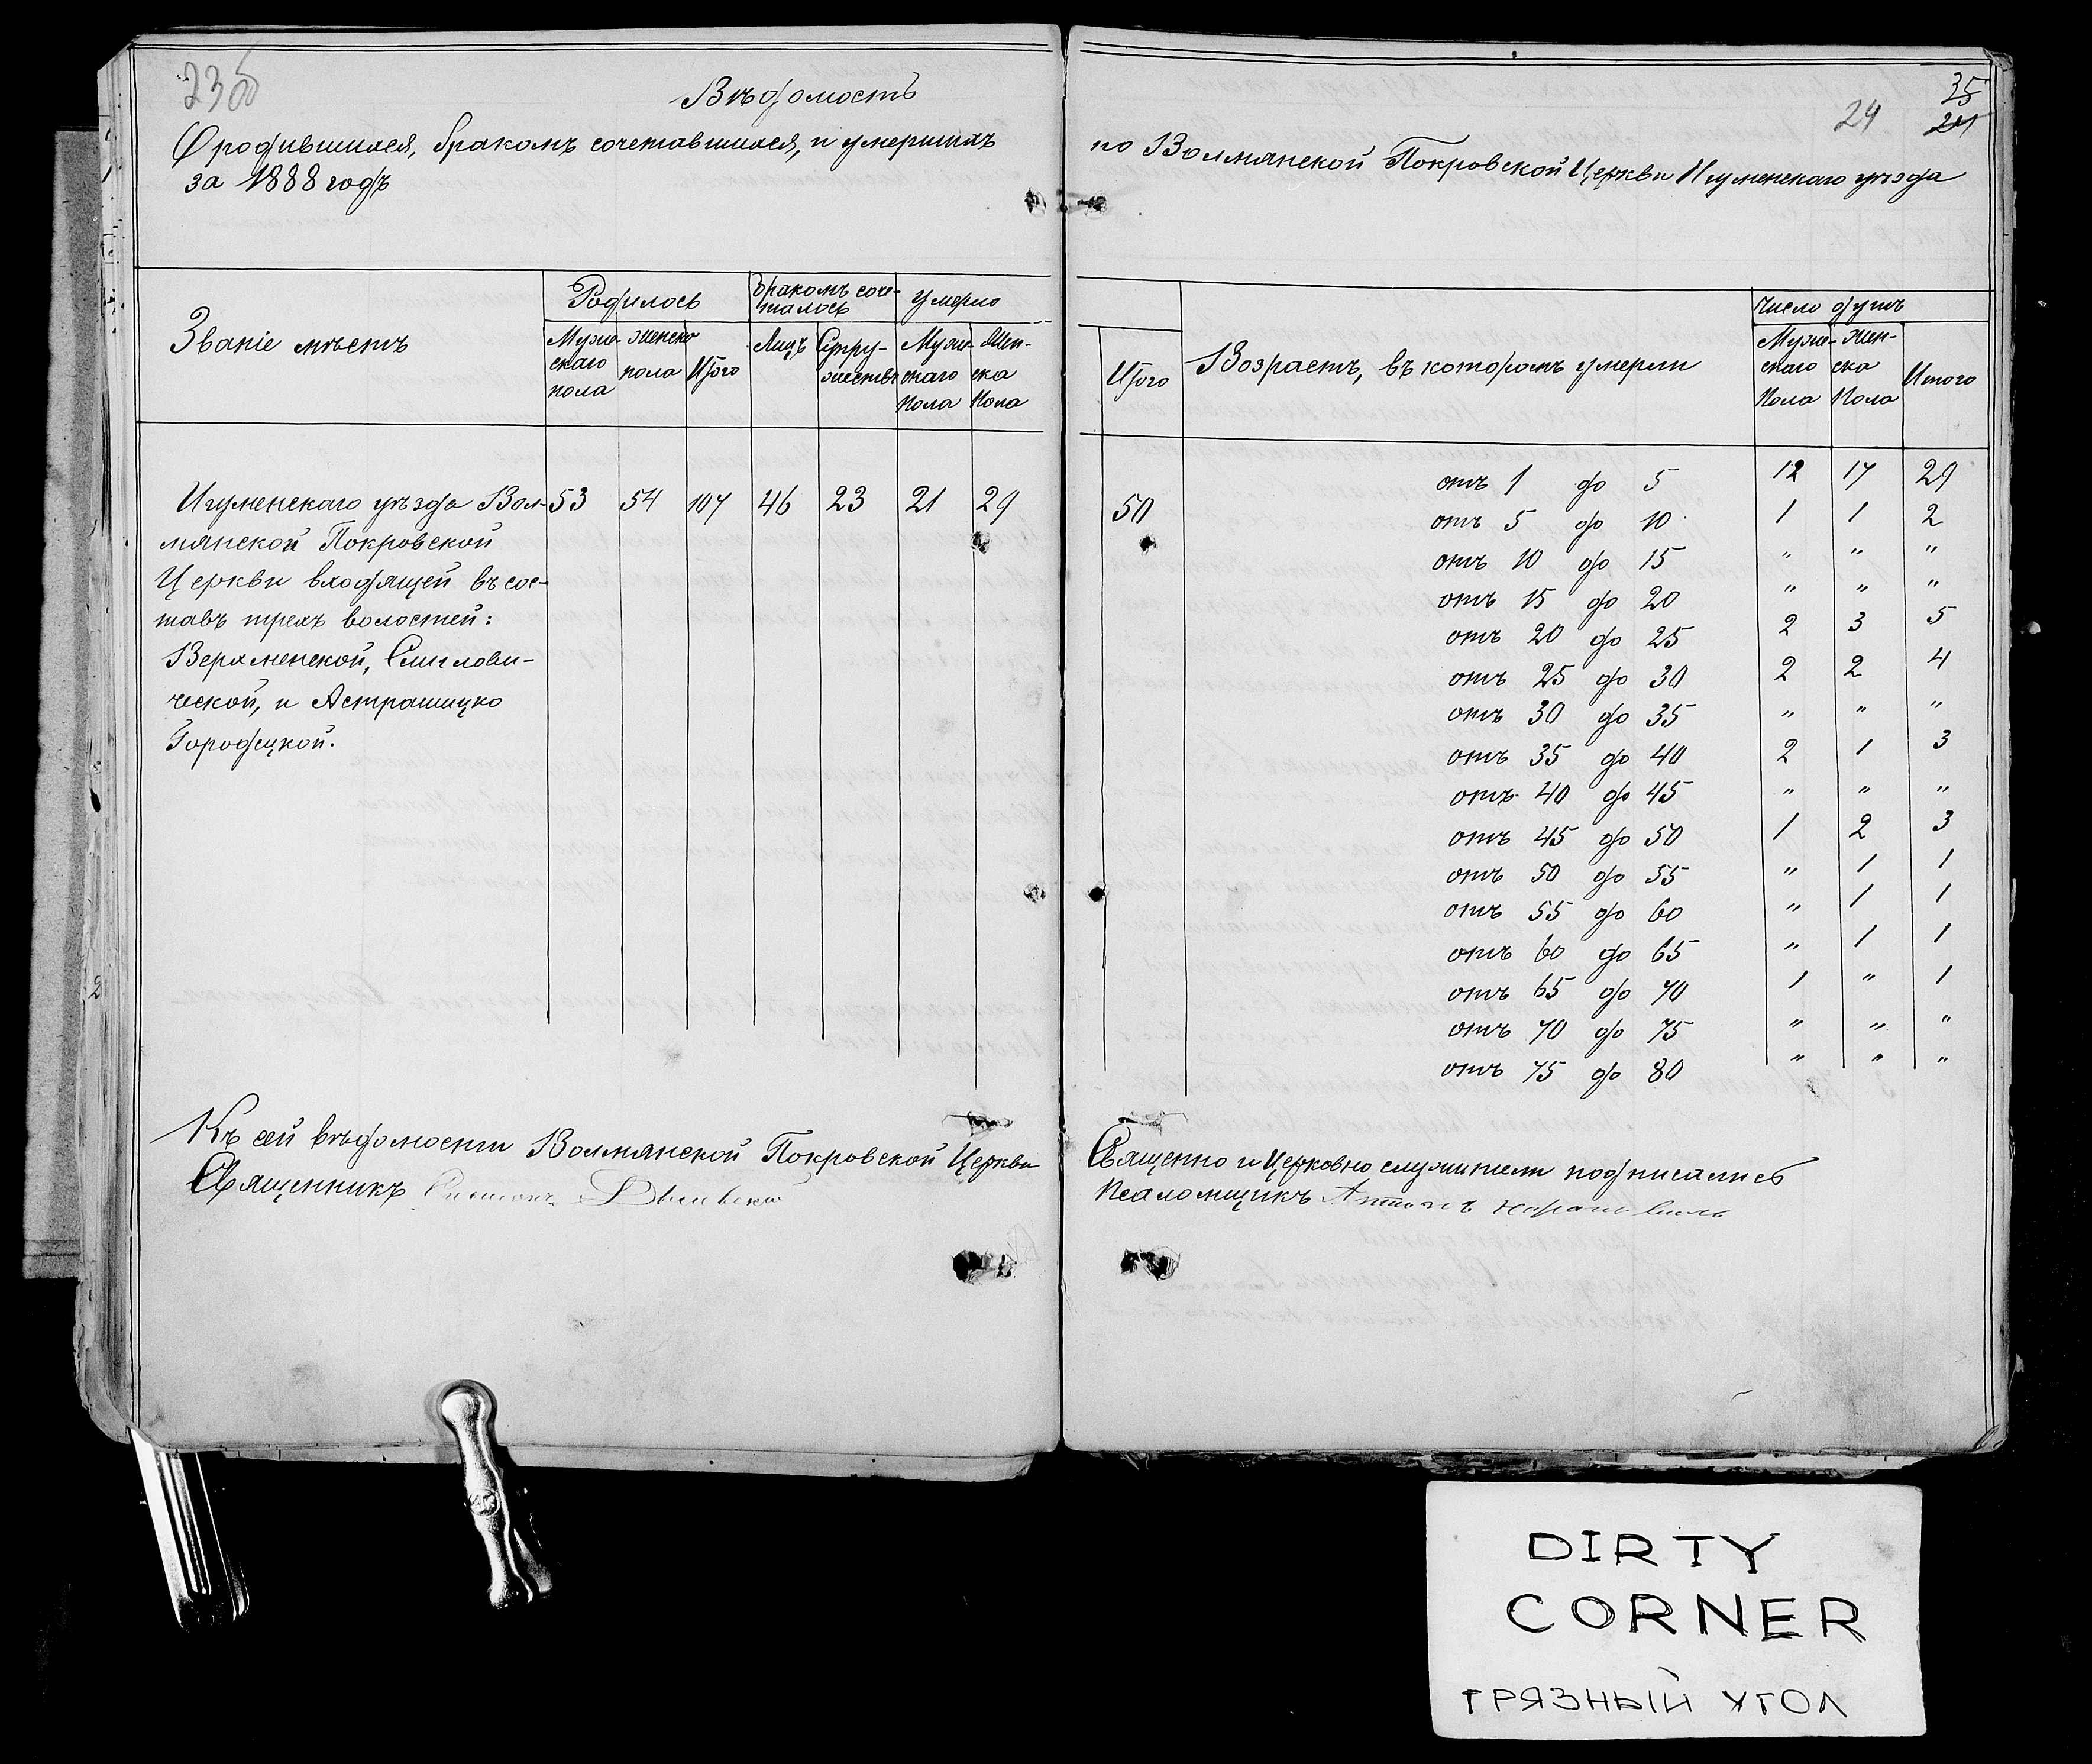 23об
Вѣдомость
О родившихся, бракомъ сочетавшихся, и умершихъ
за 1888 годъ
Званіе мѣстъ
Родилось
Бракомъ соче-
талось
умерло
Муже-
скаго
пола
женско
пола
Итого
Лицъ
Супру-
жествъ
Муже-
скаго
Пола
Жен-
ска
Пола
Игуменскаго уѣзда Вол- 53 54 107 46 23 21 29
мянской Покровской
Церкви входящей въ сос-
тавъ трехъ волостей:
Верхменской, Смилови-
ческой, и Астрашицко
Городецкой.
Къ сей вѣдомости Волмянской Покровской Церкви
Священникъ
24 35
24
по Волмянской Покровской Церкви Игуменскаго уѣзда
Итого
Возрастъ, въ которомъ умерли
Число душъ
Муже-
скаго
Пола
Жен-
ска
Пола
Итого
50
отъ 1 до 5 12 17 29
отъ 5 до 10 1 1 2
отъ 10 до 15 " " "
отъ 15 до 20 " " "
отъ 20 до 25 2 3 5
отъ 25 до 30 2 2 4
отъ 30 до 35 " " "
отъ 35 до 40 2 1 3
отъ 40 до 45 " " "
отъ 45 до 50 1 2 3
отъ 50 до 55 " 1 1
отъ 55 до 60 " 1 1
отъ 60 до 65 " 1 1
отъ 65 до 70 1 " 1
отъ 70 до 75 " " "
отъ 75 до 80 " " "
Священно и Церковно служители подписались
Псаломщикъ Антонъ
DIRTY
CORNER
ГРЯЗНЫЙ УГОЛ